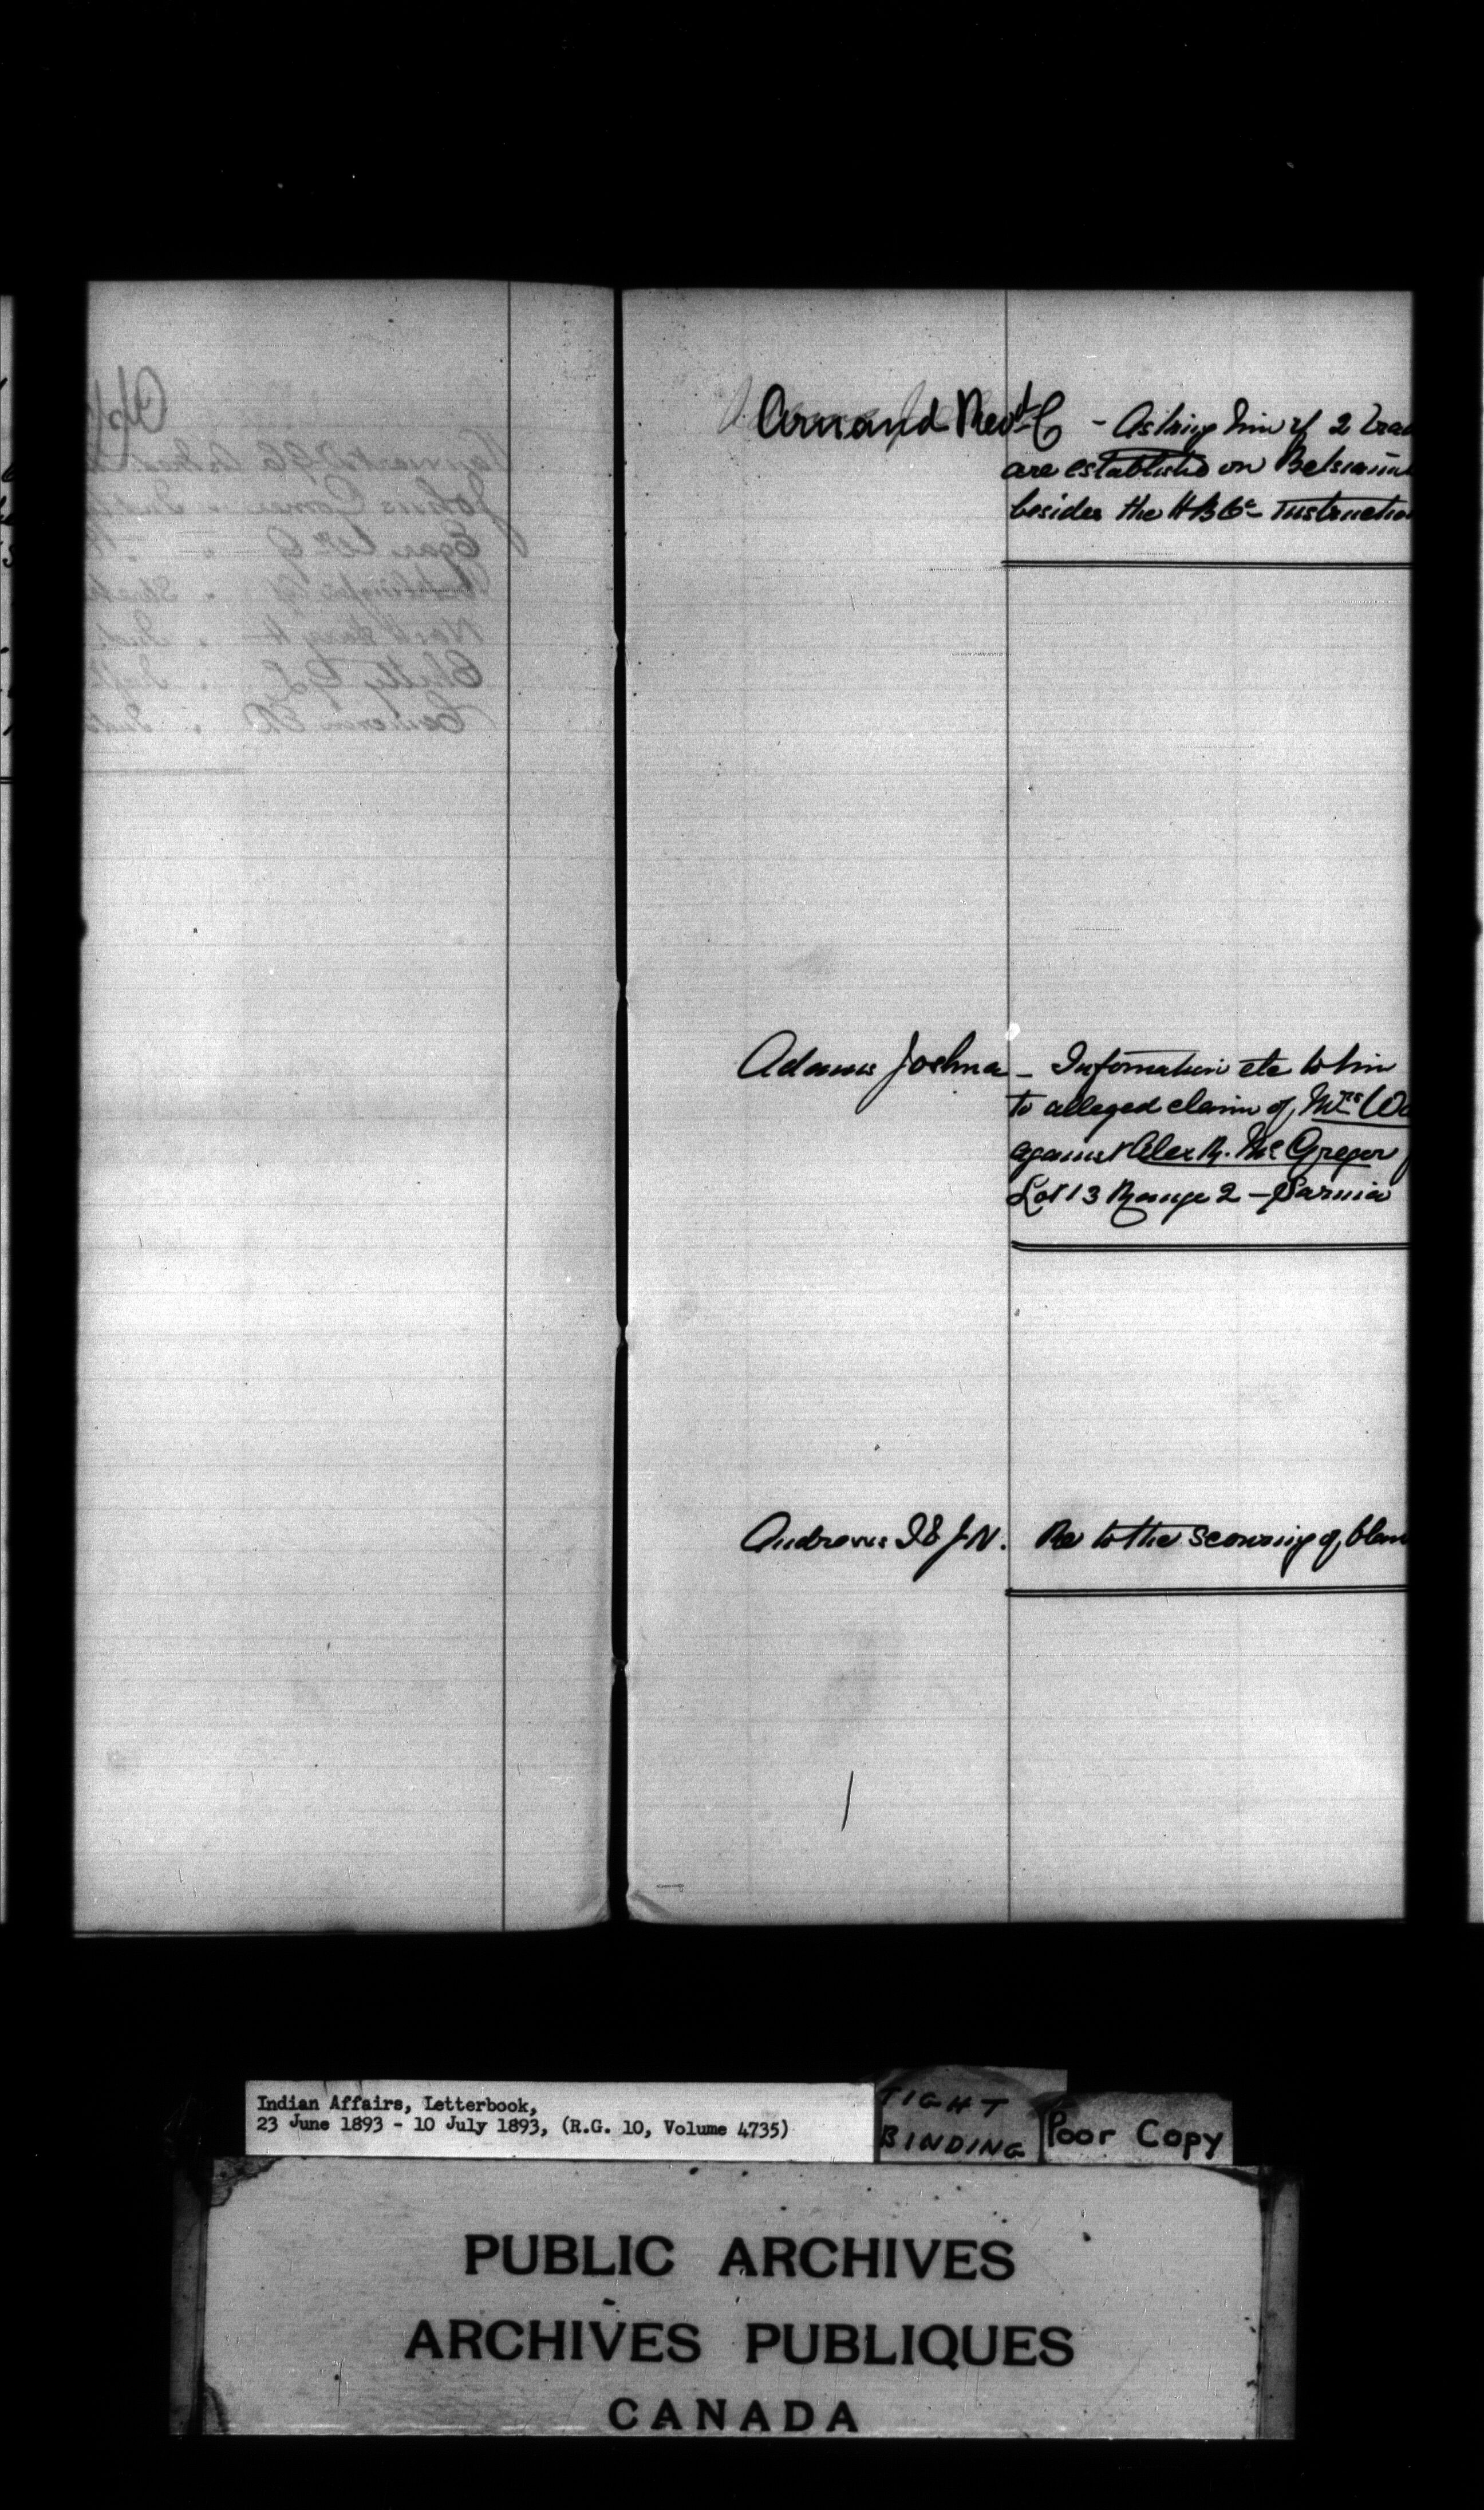 Arnaud Revd C - Asking him if 2 trad
are established on Betsiami
besides the HBCo - Instruction
Adams Joshua - Information etc to him
to alleged claim of Mrs Wa
against Alex R. McGregor
Lot 13 Range 2 - Sarnia
Andrews I & J.N. Re to the scouring of blan
Indian Affairs, Letterbook,
23 June 1893 - 10 July 1893, (R.G. 10, Volume 4735)
TIGHT
BINDING
Poor Copy
PUBLIC ARCHIVES
ARCHIVES PUBLIQUES
CANADA